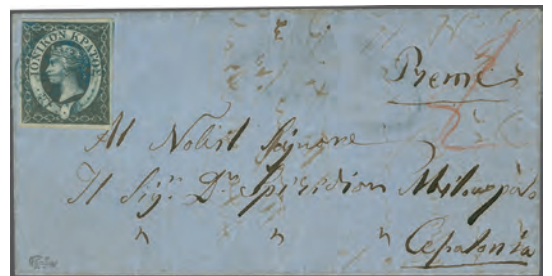 ΙΟΝΙΚΟΝ ΚΡΑΤΟΣ
Preme
Al Nobil Signore
Il Sigr. Dr. Spiridion
" " " Cefalonia